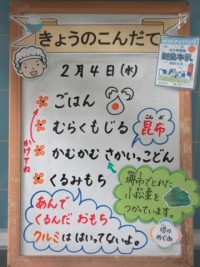 きょうのこんだて
2月4日(水)
ごはん
むらくもじる
こんぶ
昆布
かけてね
かむかむ さかいっこどん
くるみもち
堺市でとれた
小松菜を
つかっています。
あんで
くるんだ おもち
クルミは はいってないよ。
堺のめぐみ